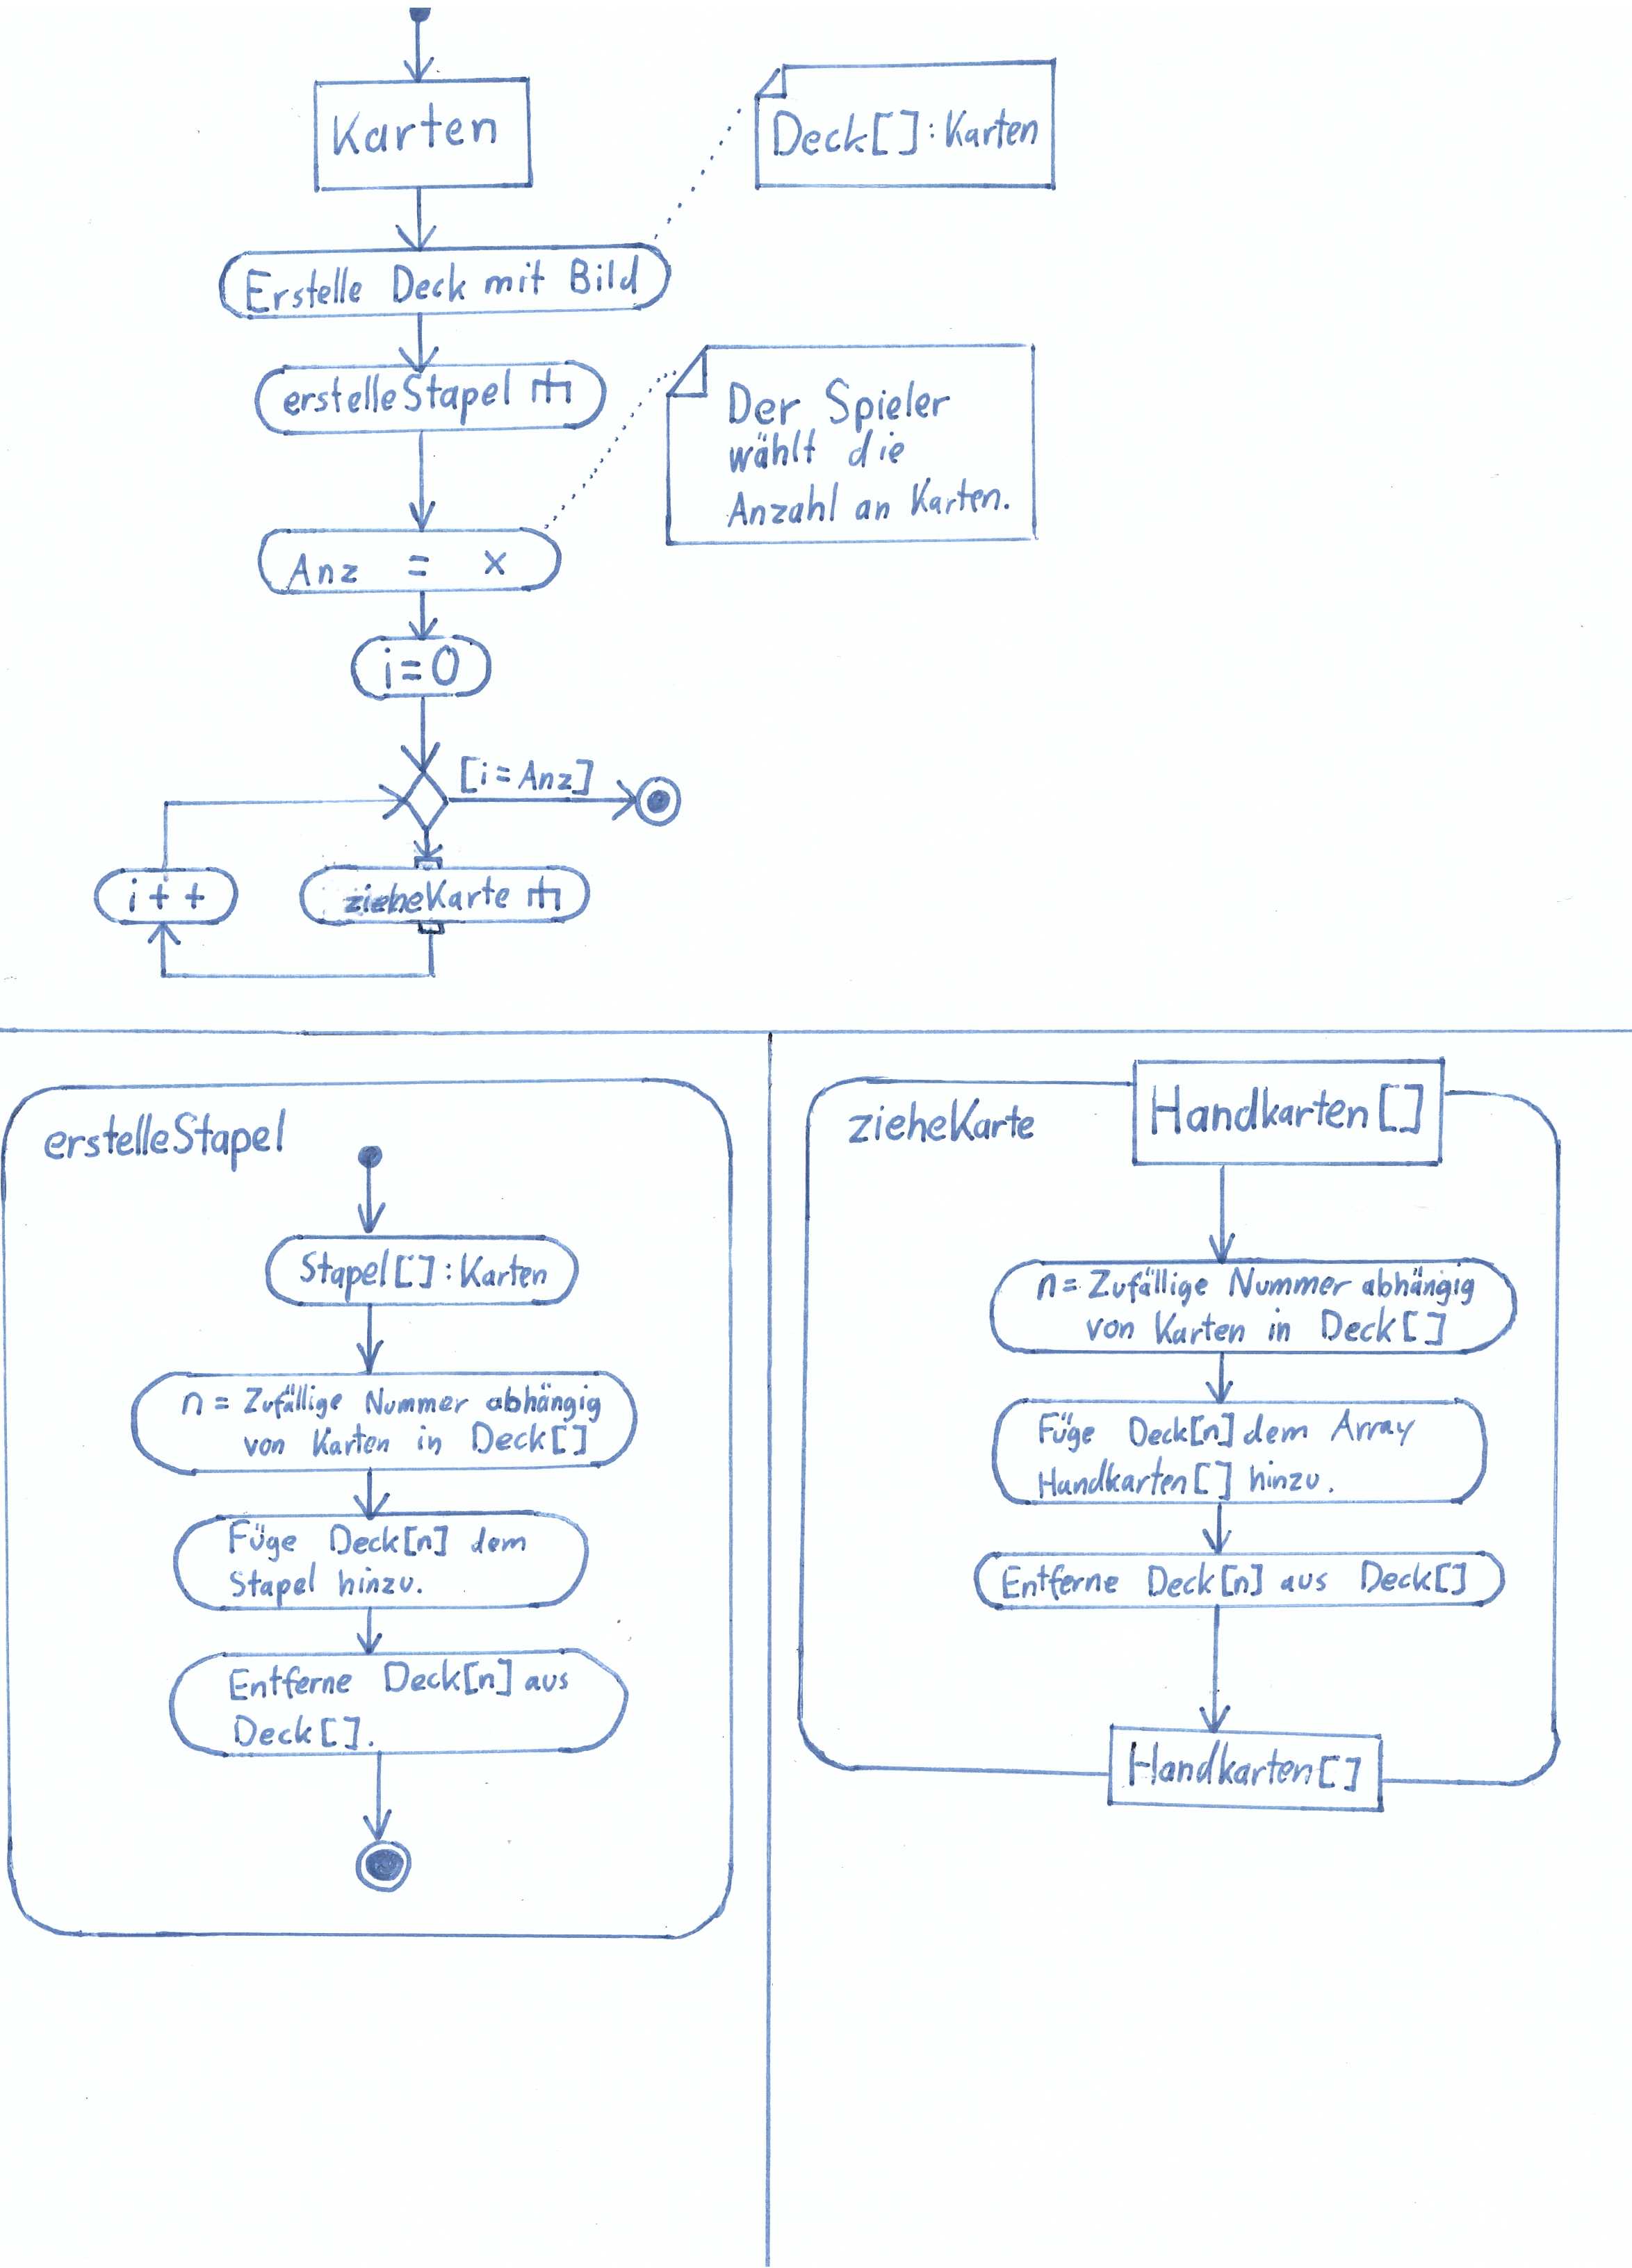 Karten
Deck[]:Karten
Erstelle Deck mit Bild
erstelleStapel
Der Spieler
wählt die
Anzahl an Karten.
Anz = x
i=0
[i=Anz]
i++
zieheKarte
erstelleStapel
Stapel[]:Karten
n= Zufällige Nummer abhängig
von Karten in Deck[]
Füge Deck[n] dem
Stapel hinzu.
Entferne Deck[n] aus
Deck[].
zieheKarte
Handkarten[]
n= Zufällige Nummer abhängig
von Karten in Deck[]
Füge Deck[n] dem Array
Handkarten[] hinzu.
Entferne Deck[n] aus Deck[]
Handkarten[]